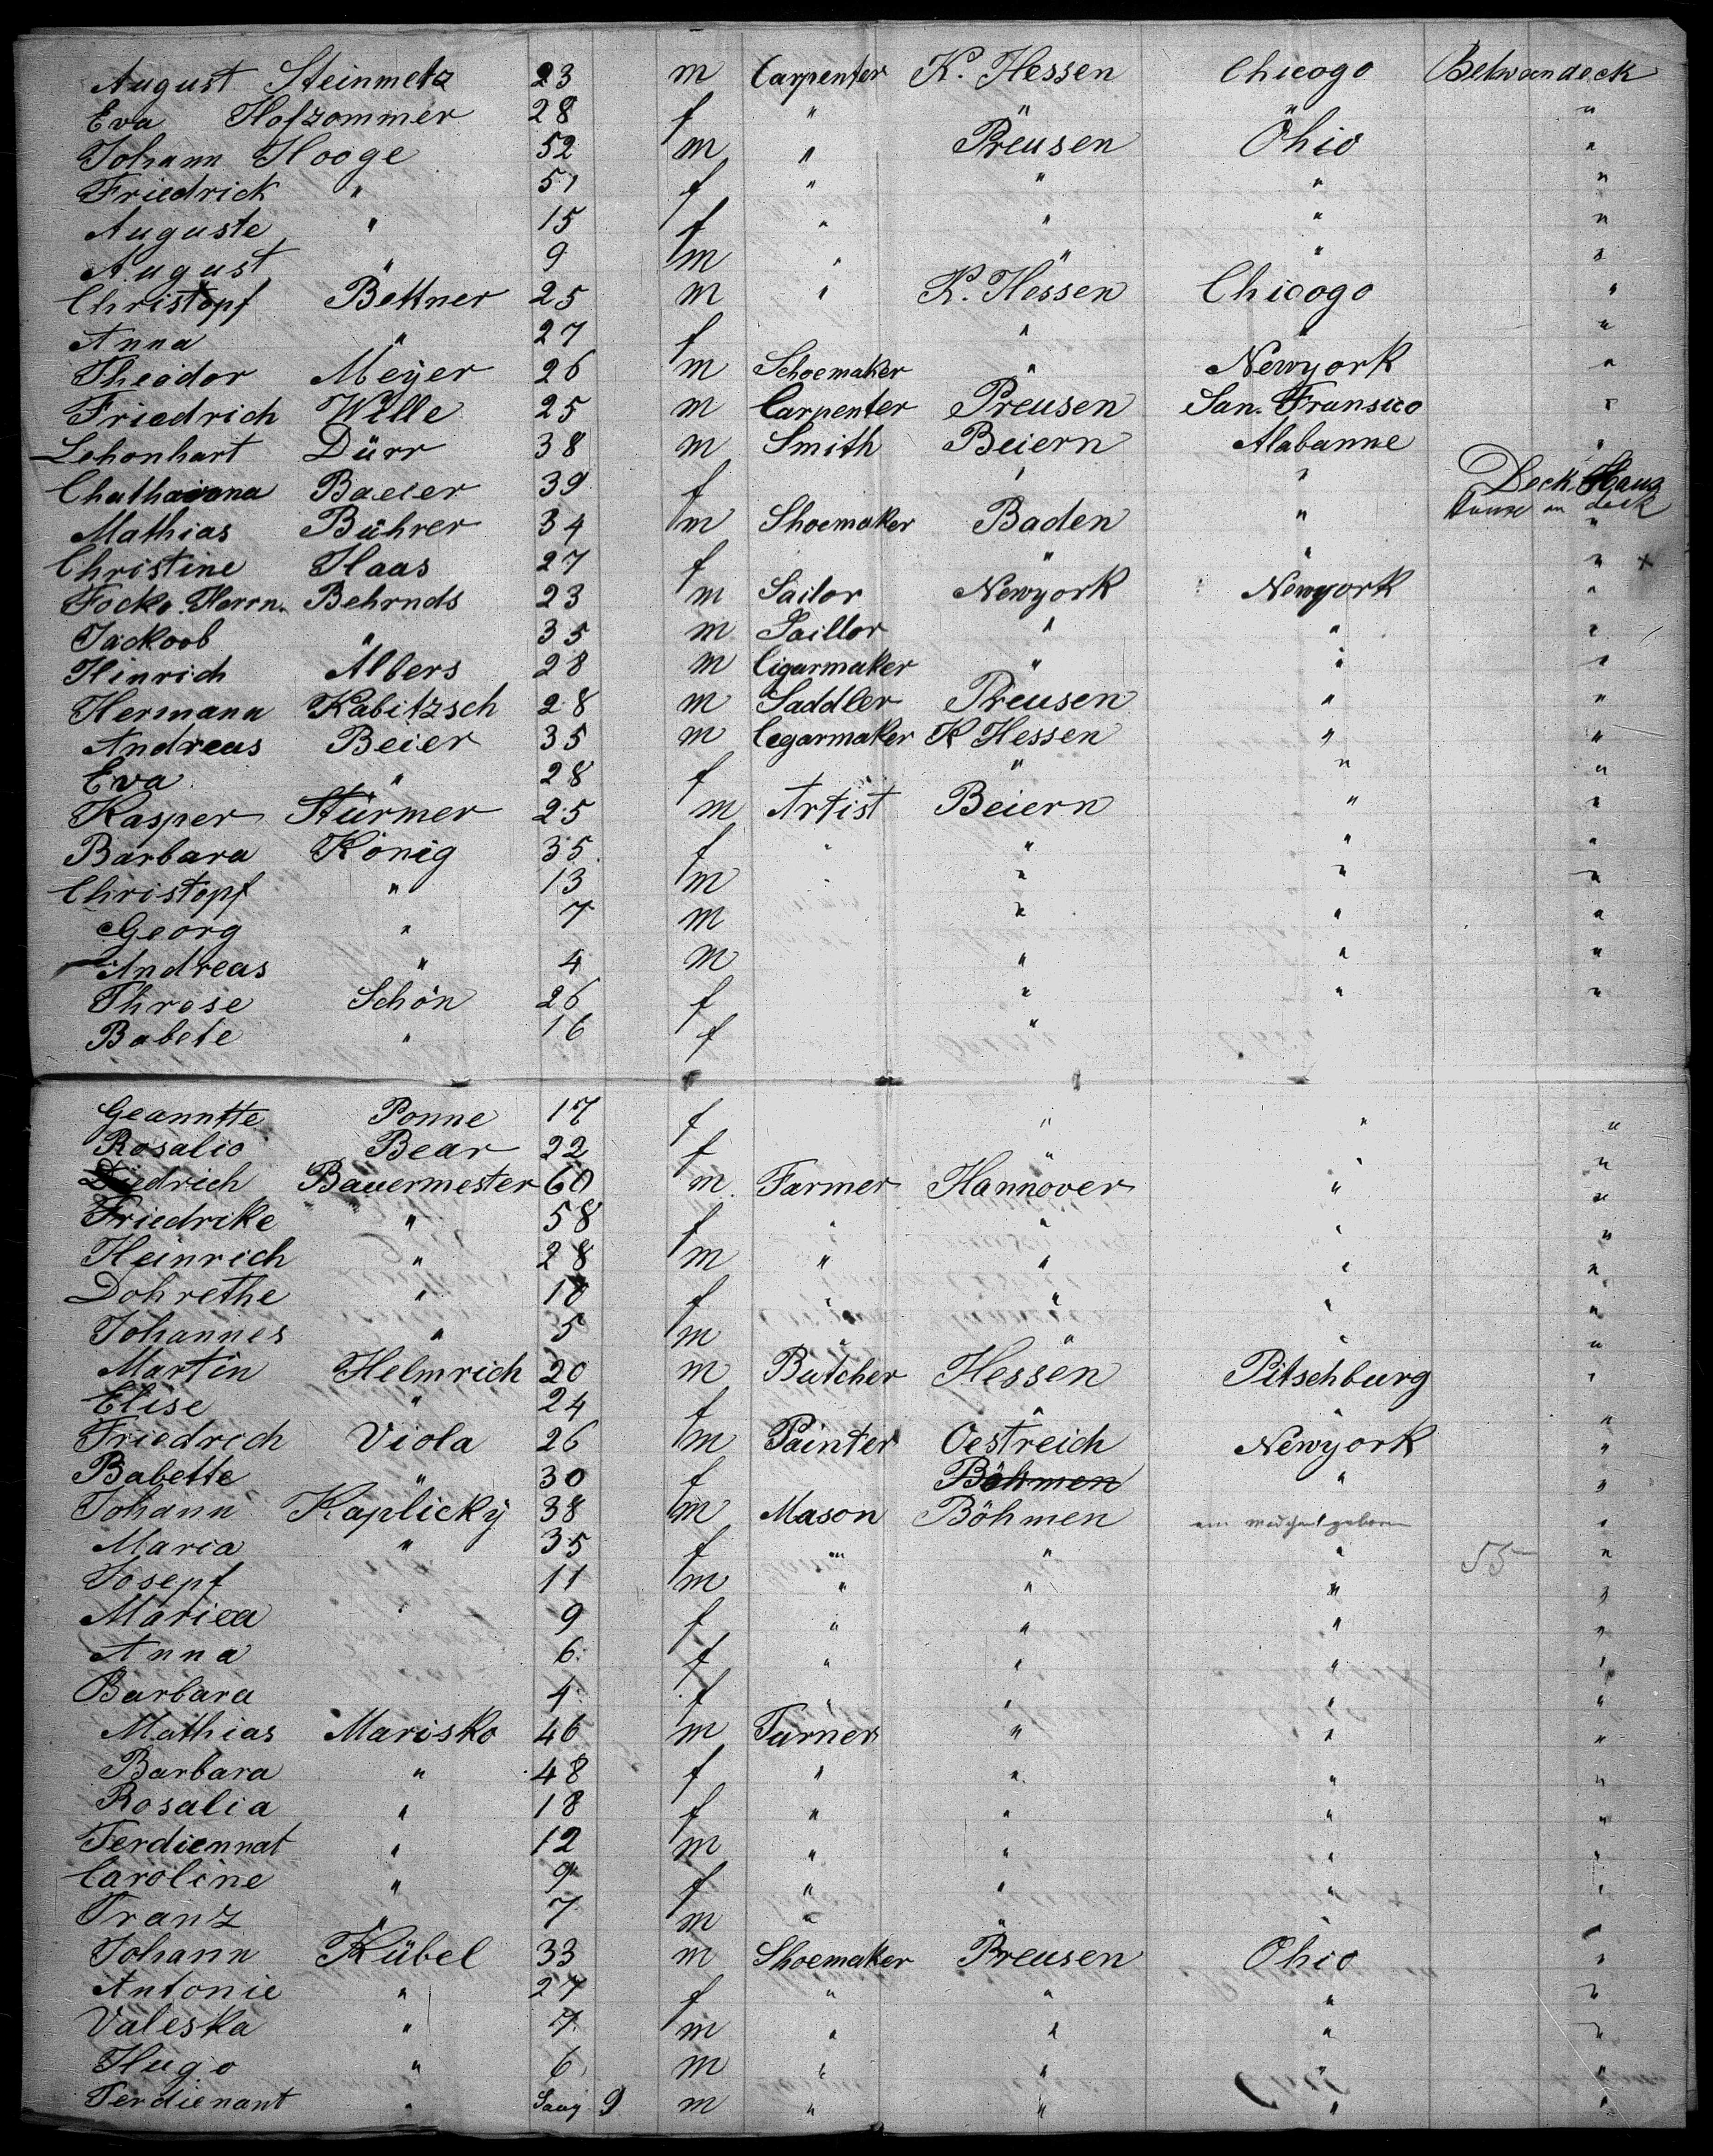 August Steinmetz 23 m Carpenter K. Hessen Chicogo Betwandeck
Eva Hofzommer 28 f " " " "
Johann Hooge 52 m " Preusen Ohio "
Friedrick " 51 f " " " "
Auguste " 15 f " " " "
August " 9 m " " " "
Christopf Bettner 25 m " K. Hessen Chicogo "
Anna " 27 f " " "
Theodor Meyer 26 m Schoemaker " Newyork "
Friedrich Wille 25 m Carpenter Preusen San. Fransico "
Lehonhart Dürr 38 m Smith Beiern Alabanne "
Baeier 39 f " " Deck Haus
Mathias Bührer 34 m Shoemaker Baden " "
Christine Haas 27 f " " " x
Focko. Herrn. Behrnds 23 m Sailor Newyork Newyork "
Jackoob " 35 m Saillor " " "
Hinrich Albers 28 m Cigarmaker " " "
Hermann Kabitzsch 28 m Saddler Preusen " "
Andreas Beier 35 m Cegarmaker K Hessen " "
Eva " 28 f " " "
Kasper Stürmer 25 m Artist Beiern " "
Barbara König 35 f " " " "
Christopf " 13 m " " " "
Georg " 7 m " " "
Andreas " 4 m " " "
Threse Schön 26 f " " "
Babete " 16 f "
Geanntte Ponne 17 f " " "
Rosalio Bear 22 f " " "
Diedrich Bauermester 60 m Farmer Hannover " "
Friedrike " 58 f " " " "
Heinrich " 28 m " " " "
Dohrethe " f " " " "
Johannes " 5 m " " " "
Martin Helmrich 20 m Butcher Hessen Pitschburg "
Elise " 24 f " " "
Friedrich Viola 26 m Painter Oestreich Newyork "
Babette " 30 f Böhmen " "
Johann Kaplicky 38 m Mason Böhmen "
Maria " 35 f " " " 55 "
Josepf 11 m " " " "
Mariea " 9 f " " " "
Anna 6 f " " " "
Barbara 4 f " " " "
Mathias Marisko 46 m Turner " " "
Barbara " 48 f " " " "
Rosalia " 18 f " " " "
Ferdiennat " 12 m " " " "
Caroline " 9 f " " " "
Franz " 7 m " " " "
Johann Kübel 33 m Shoemaker Preusen Ohio "
Antonie " 27 f " " " "
Valeska " 7 m " " " "
Hugo " 6 m " " " "
Ferdienant " Saug 9 m " " " "